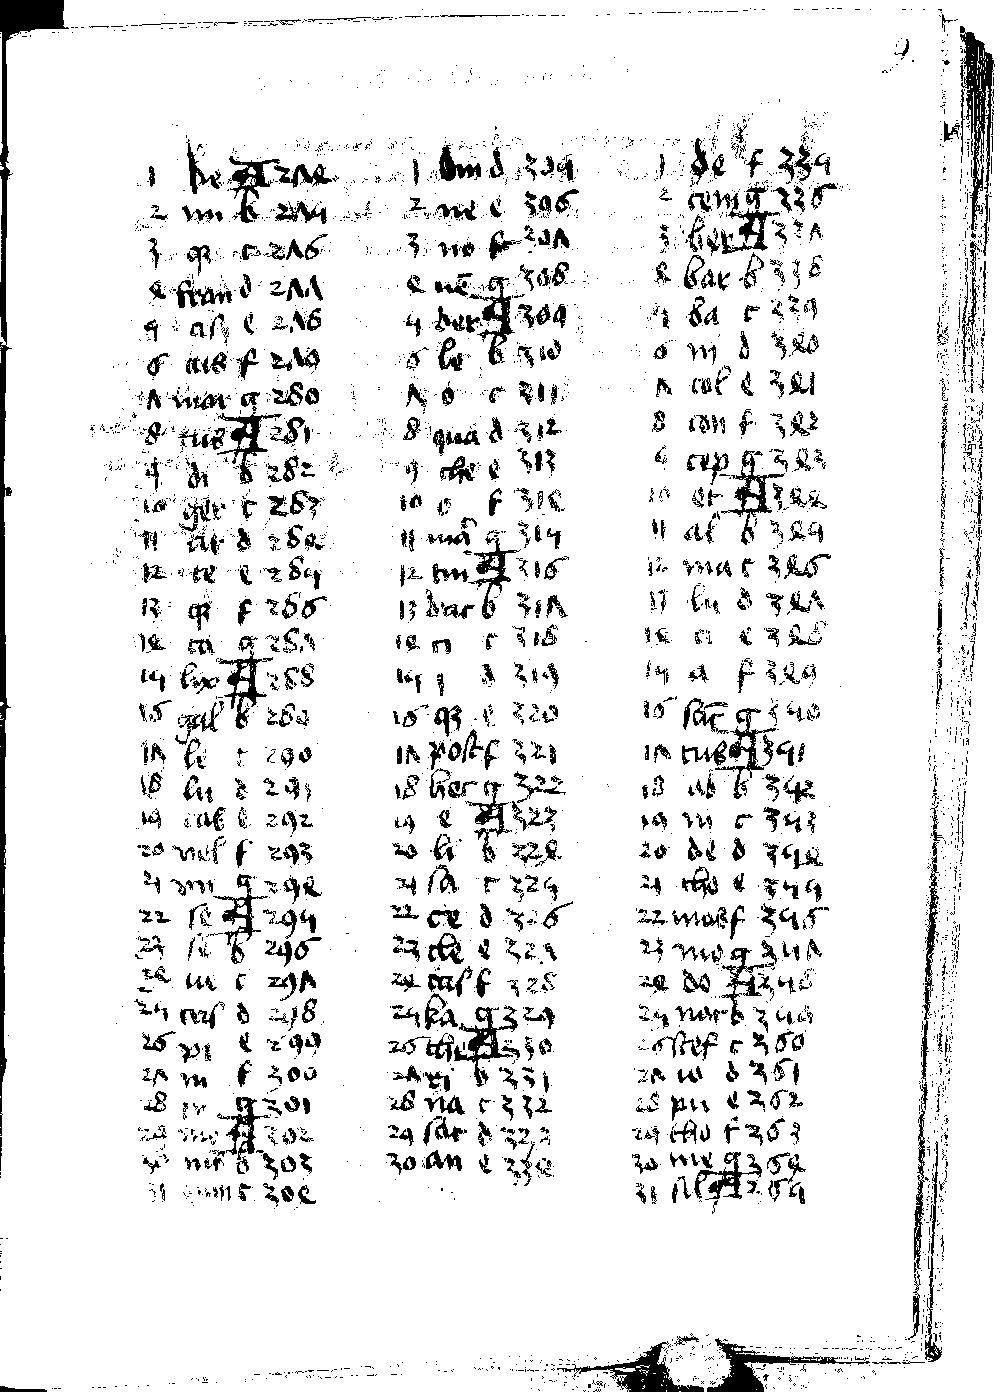 9.
1 Re A 274
2 mi b 275
3 q c 276
4 fran d 277
5 cis e 278
6 cus f 279
7 mar g 280
8 cus A 281
9 di b 282
10 ger c 283
11 ar d 284
12 te e 285
13 q f 286
14 ca g 287
15 lux A 288
16 gal b 289
17 le c 290
18 lu d 291
19 cas e 292
20 vel f 293
21 vn g 294
22 se A 295
23 se b 296
24 c 297
25 cris d 298
26 pi e 299
27 m f 300
28 g 301
29 mo A 302
30 b 303
31 c 304
1 Om d 305
2 ne e 306
3 no f 307
4 nē g 308
5 ber A 309
6 le b 310
7 o c 311
8 qua d 312
9 the e 313
10 o f 314
11 mar g 315
12 tin A 316
13 bric b 317
14 ci c 318
15 i d 319
16 q e 320
17 post f 321
18 hec g 322
19 e A 323
20 li b 324
21 sa c 325
22 ce d 326
23 cle e 327
24 cris f 328
25 ka g 329
26 the A 330
27 ri b 331
28 na c 332
29 sat d 333
30 an e 334
1 de f 335
2 cem g 336
3 ber A 337
4 bar b 338
5 ba c 339
6 ni d 340
7 col e 341
8 con f 342
9 cep g 343
10 et A 344
11 al b 345
12 ma c 346
13 lu d 347
14 ci e 348
15 a f 349
16 sāt g 350
17 tus A 351
18 ab b 352
19 in c 353
20 de d 354
21 tho e 355
22 mas f 356
23 mo g 357
24 do A 358
25 nat b 359
26 stef c 360
27 io d 361
28 pu e 362
29 tho f 363
30 me g 364
31 sil A 365